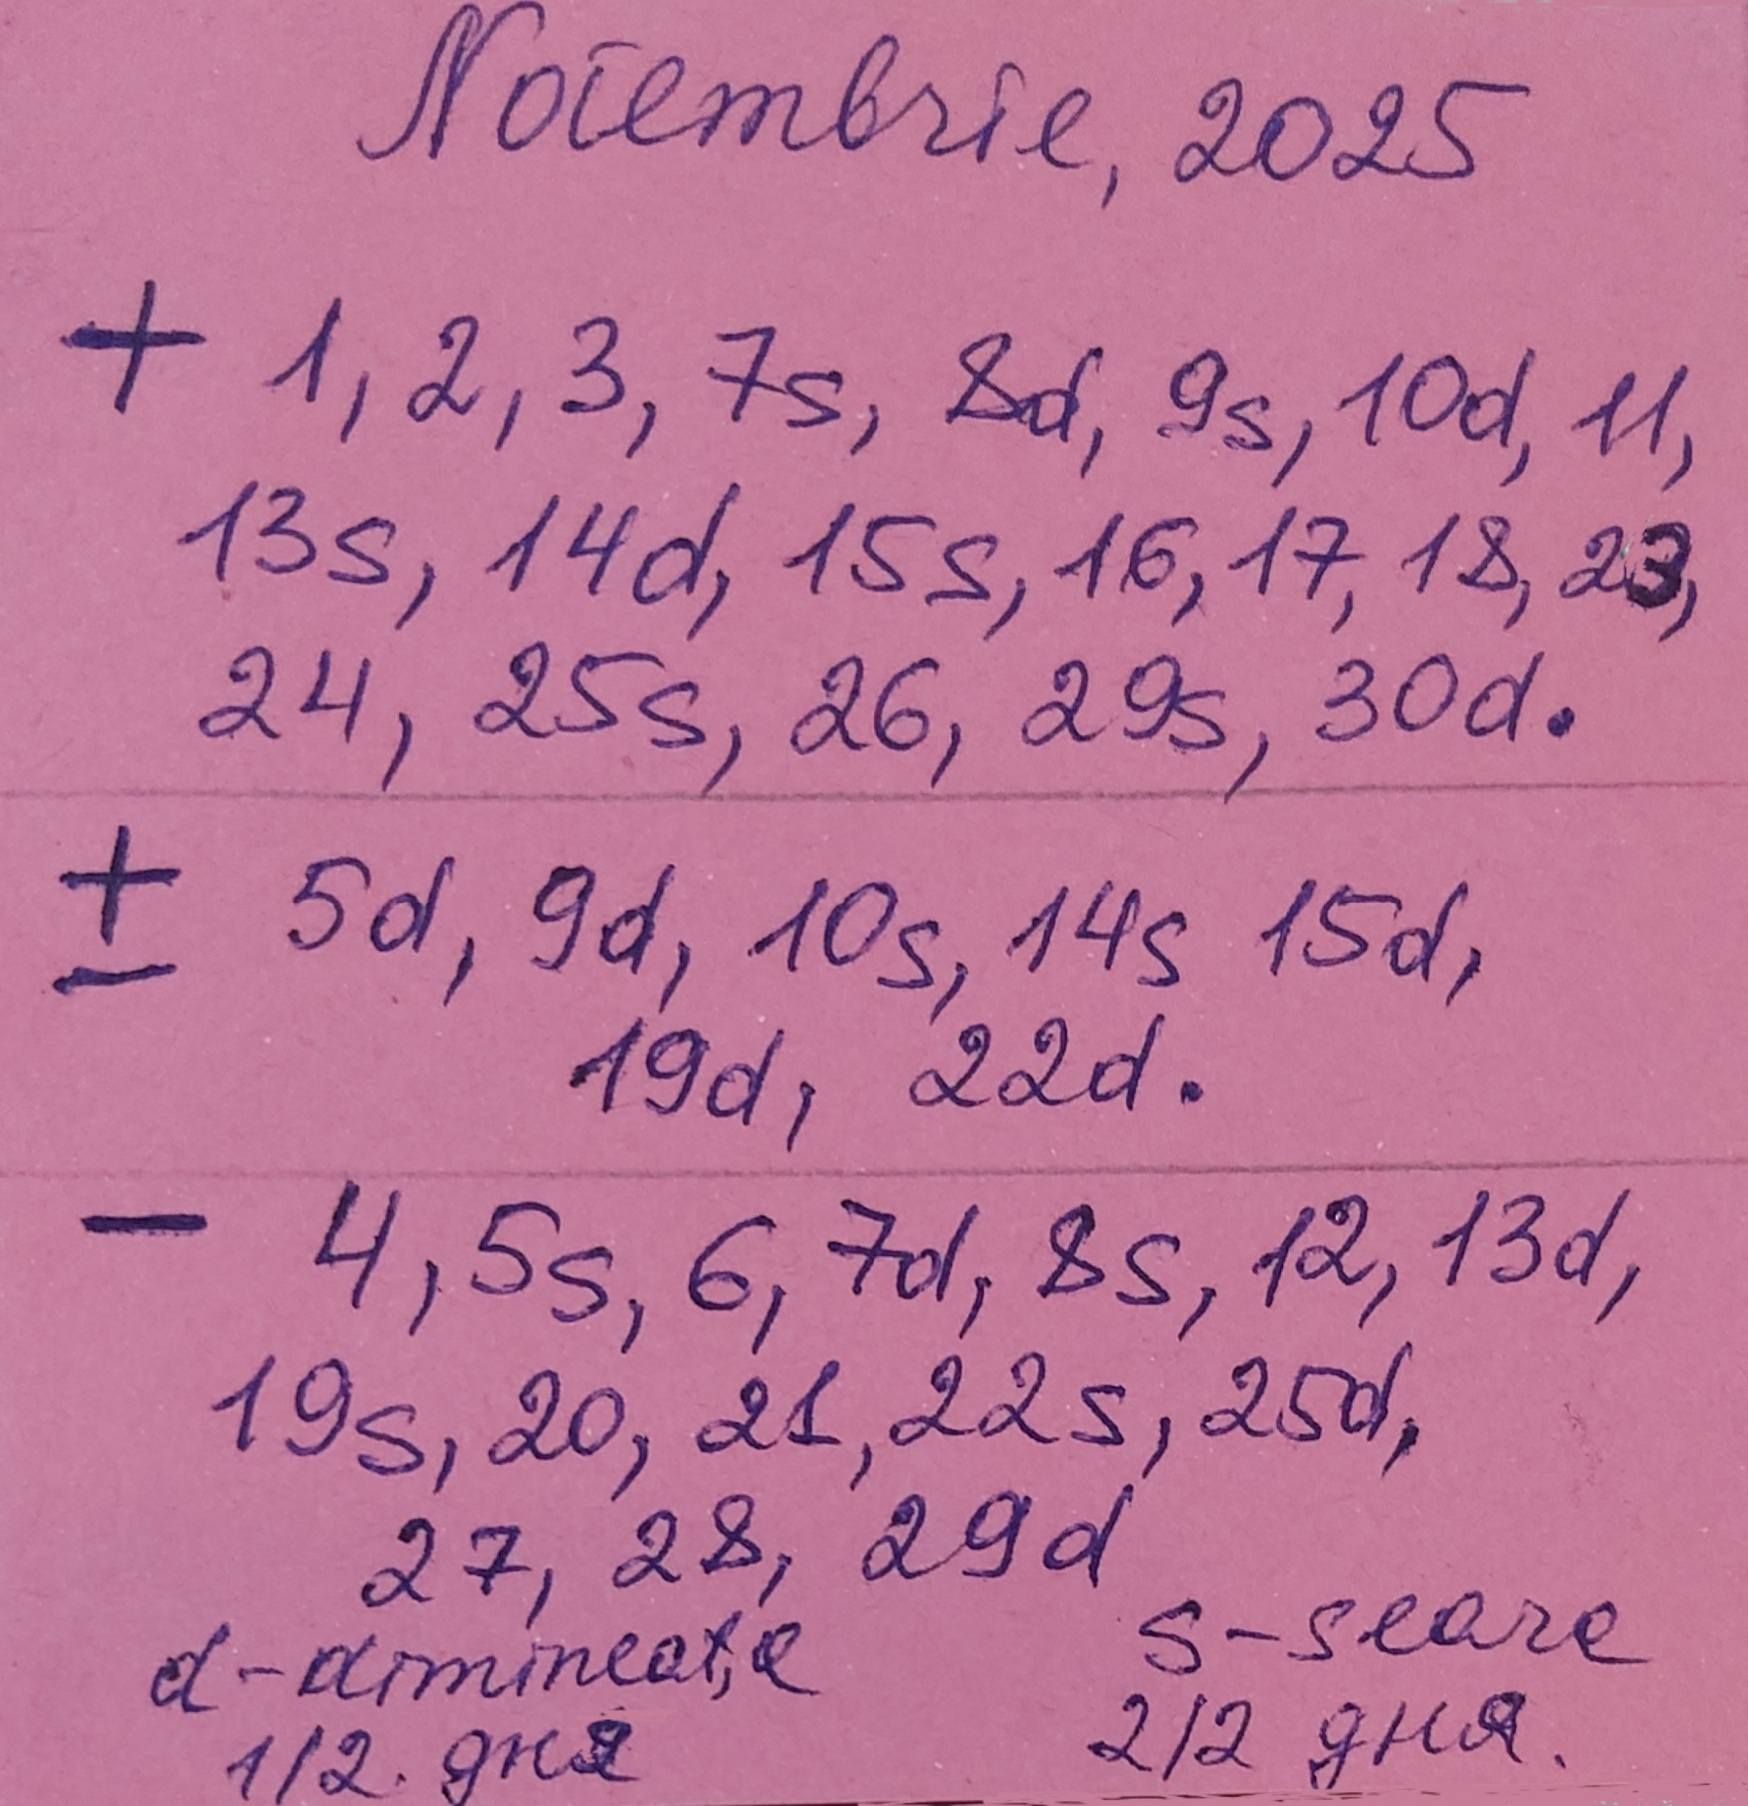 Noiembrie, 2025
+ 1, 2, 3, 7s, 8d, 9s, 10d, 11,
13s, 14d, 15s, 16, 17, 18, 23,
24, 25s, 26, 29s, 30d.
± 5d, 9d, 10s, 14s 15d,
19d, 22d.
− 4, 5s, 6, 7d, 8s, 12, 13d,
19s, 20, 21, 22s, 25d,
27, 28, 29d
d-dimineață s-seara
1/2. дня 2/2 дня.